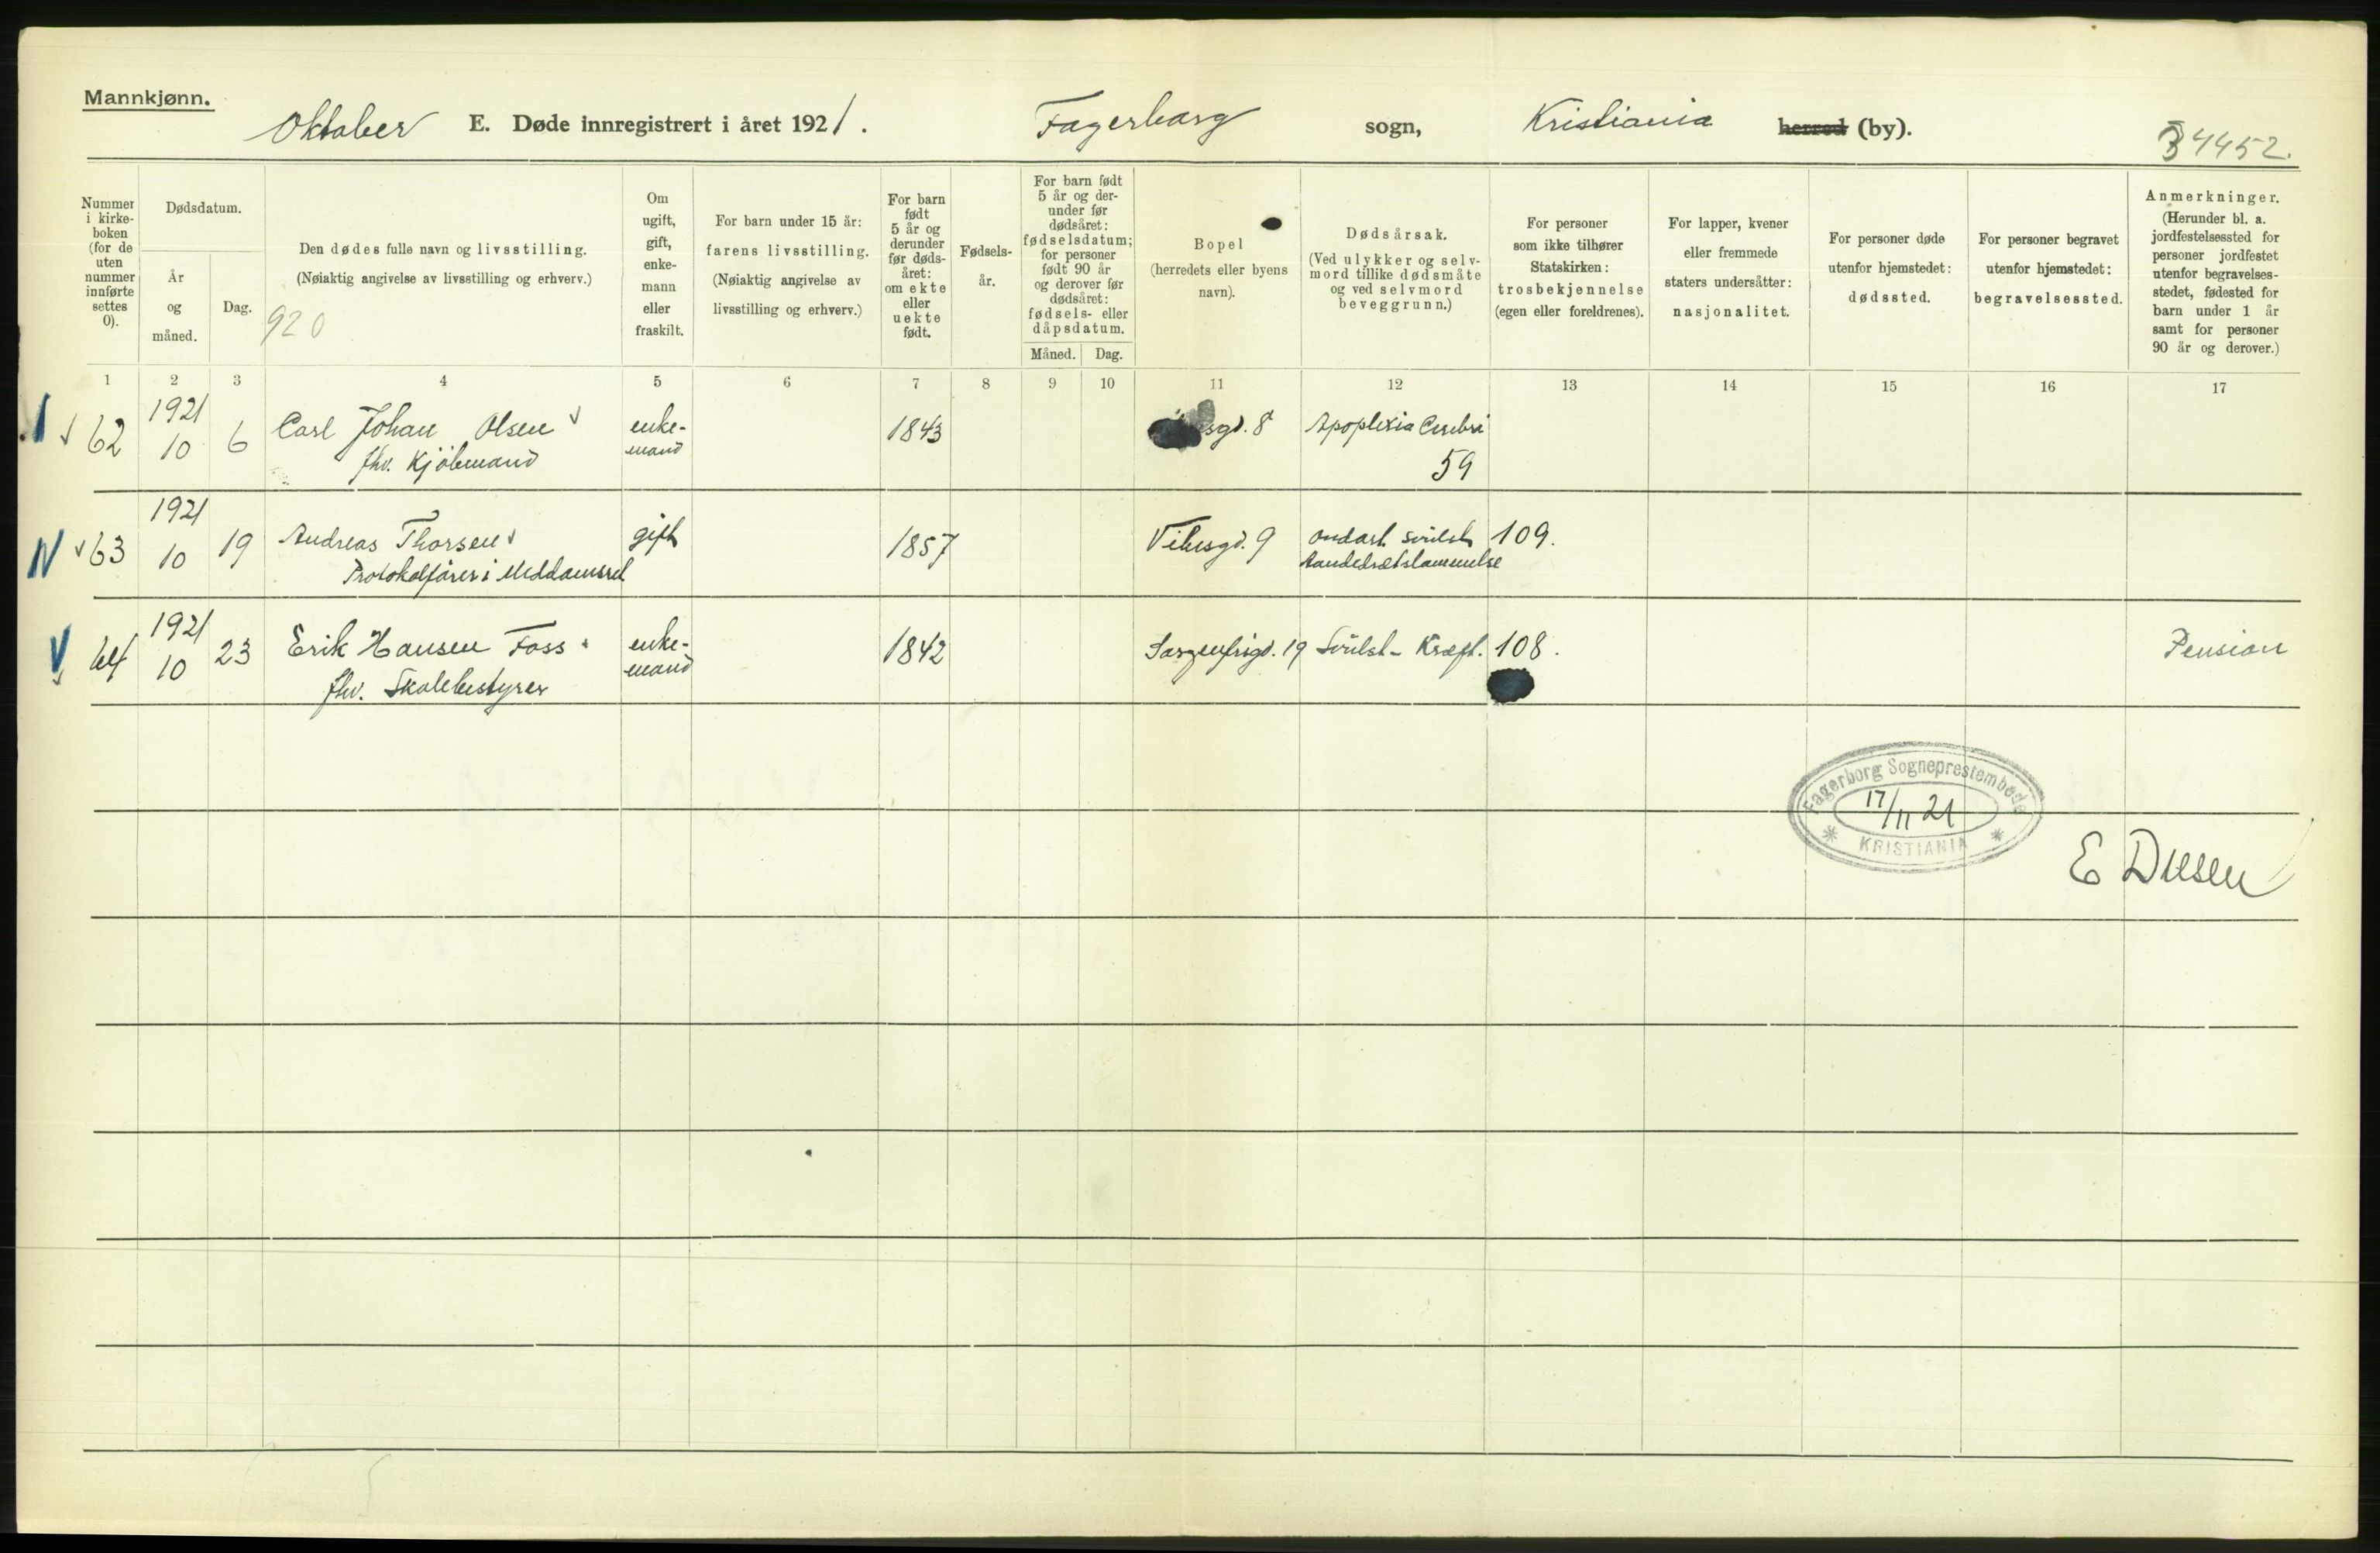 Mannkjønn.
Oktober E. Døde innregistrert i året 1921. Fagerborg sogn, Kristiania herred (by).
34452.
Nummer i kirke- boken (for de uten nummer innførte settes 0).
Dødsdatum.
År og måned.
Dag.
Den dødes fulle navn og livsstilling.
(Nøiaktig angivelse av livsstilling og erhverv.)
920
Om ugift, gift, enke- mann eller fraskilt.
For barn under 15 år:
farens livsstilling.
(Nøiaktig angivelse av
livsstilling og erhverv.)
For barn født 5 år og derunder før døds- året: om ekte eller uekte født.
Fødsels- år.
For barn født 5 år og der- under før dødsåret: fødselsdatum; for personer født 90 år og derover før dødsåret: fødsels- eller dåpsdatum.
Måned. Dag.
Bopel
(herredets eller byens
navn).
Dødsårsak.
(Ved ulykker og selv-
mord tillike dødsmåte
og ved selvmord
beveggrunn.)
For personer
som ikke tilhører
Statskirken:
trosbekjennelse
(egen eller foreldrenes).
For lapper, kvener
eller fremmede
staters undersåtter:
nasjonalitet.
For personer døde
utenfor hjemstedet:
dødssted.
For personer begravet
utenfor hjemstedet:
begravelsessted.
Anmerkninger.
(Herunder bl. a.
jordfestelsessted for
personer jordfestet
utenfor begravelses-
stedet, fødested for
barn under 1 år
samt for personer
90 år og derover.)
1 2 3 4 5 6 7 8 9 10 11 12 13 14 15 16 17
62 1921 10 6 Carl Johan Olsen enke- 1843 sgd. 8 Apoplexia Cerebri
fhv. Kjøbmand mand 59
63 1921 10 19 Andreas Thorsen gift 1857 Vibesgd. 9 Ondart Svulst 109.
Protokolfører i Meddomsret Aandedrætslammelse
64 1921 10 23 Erik Hansen Foss enke- 1842 Sorgenfrigd. 19 Svulst - Kræft. 108. Pension
fhv. Skolebestyrer mand
Fagerborg Sogneprestembede
17/11 21
KRISTIANIA